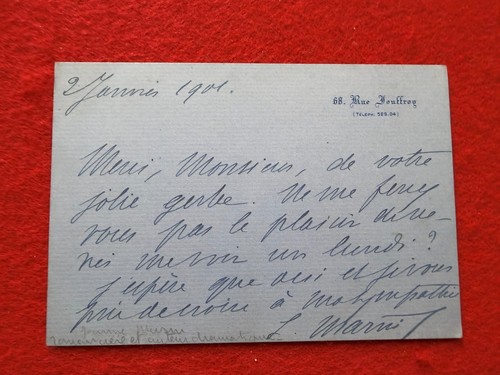 2 Janvier 1901.
68. Rue Jouffroy
(TÉLÉPH. 529.04)
Merci, Monsieur, de votre
jolie gerbe. Ne me ferez
vous pas le plaisir de ve-
nir me voir un lundi ?
J'espère que oui et
prie de croire à ma sympathie
J. Marni
romancière et auteur dramatique